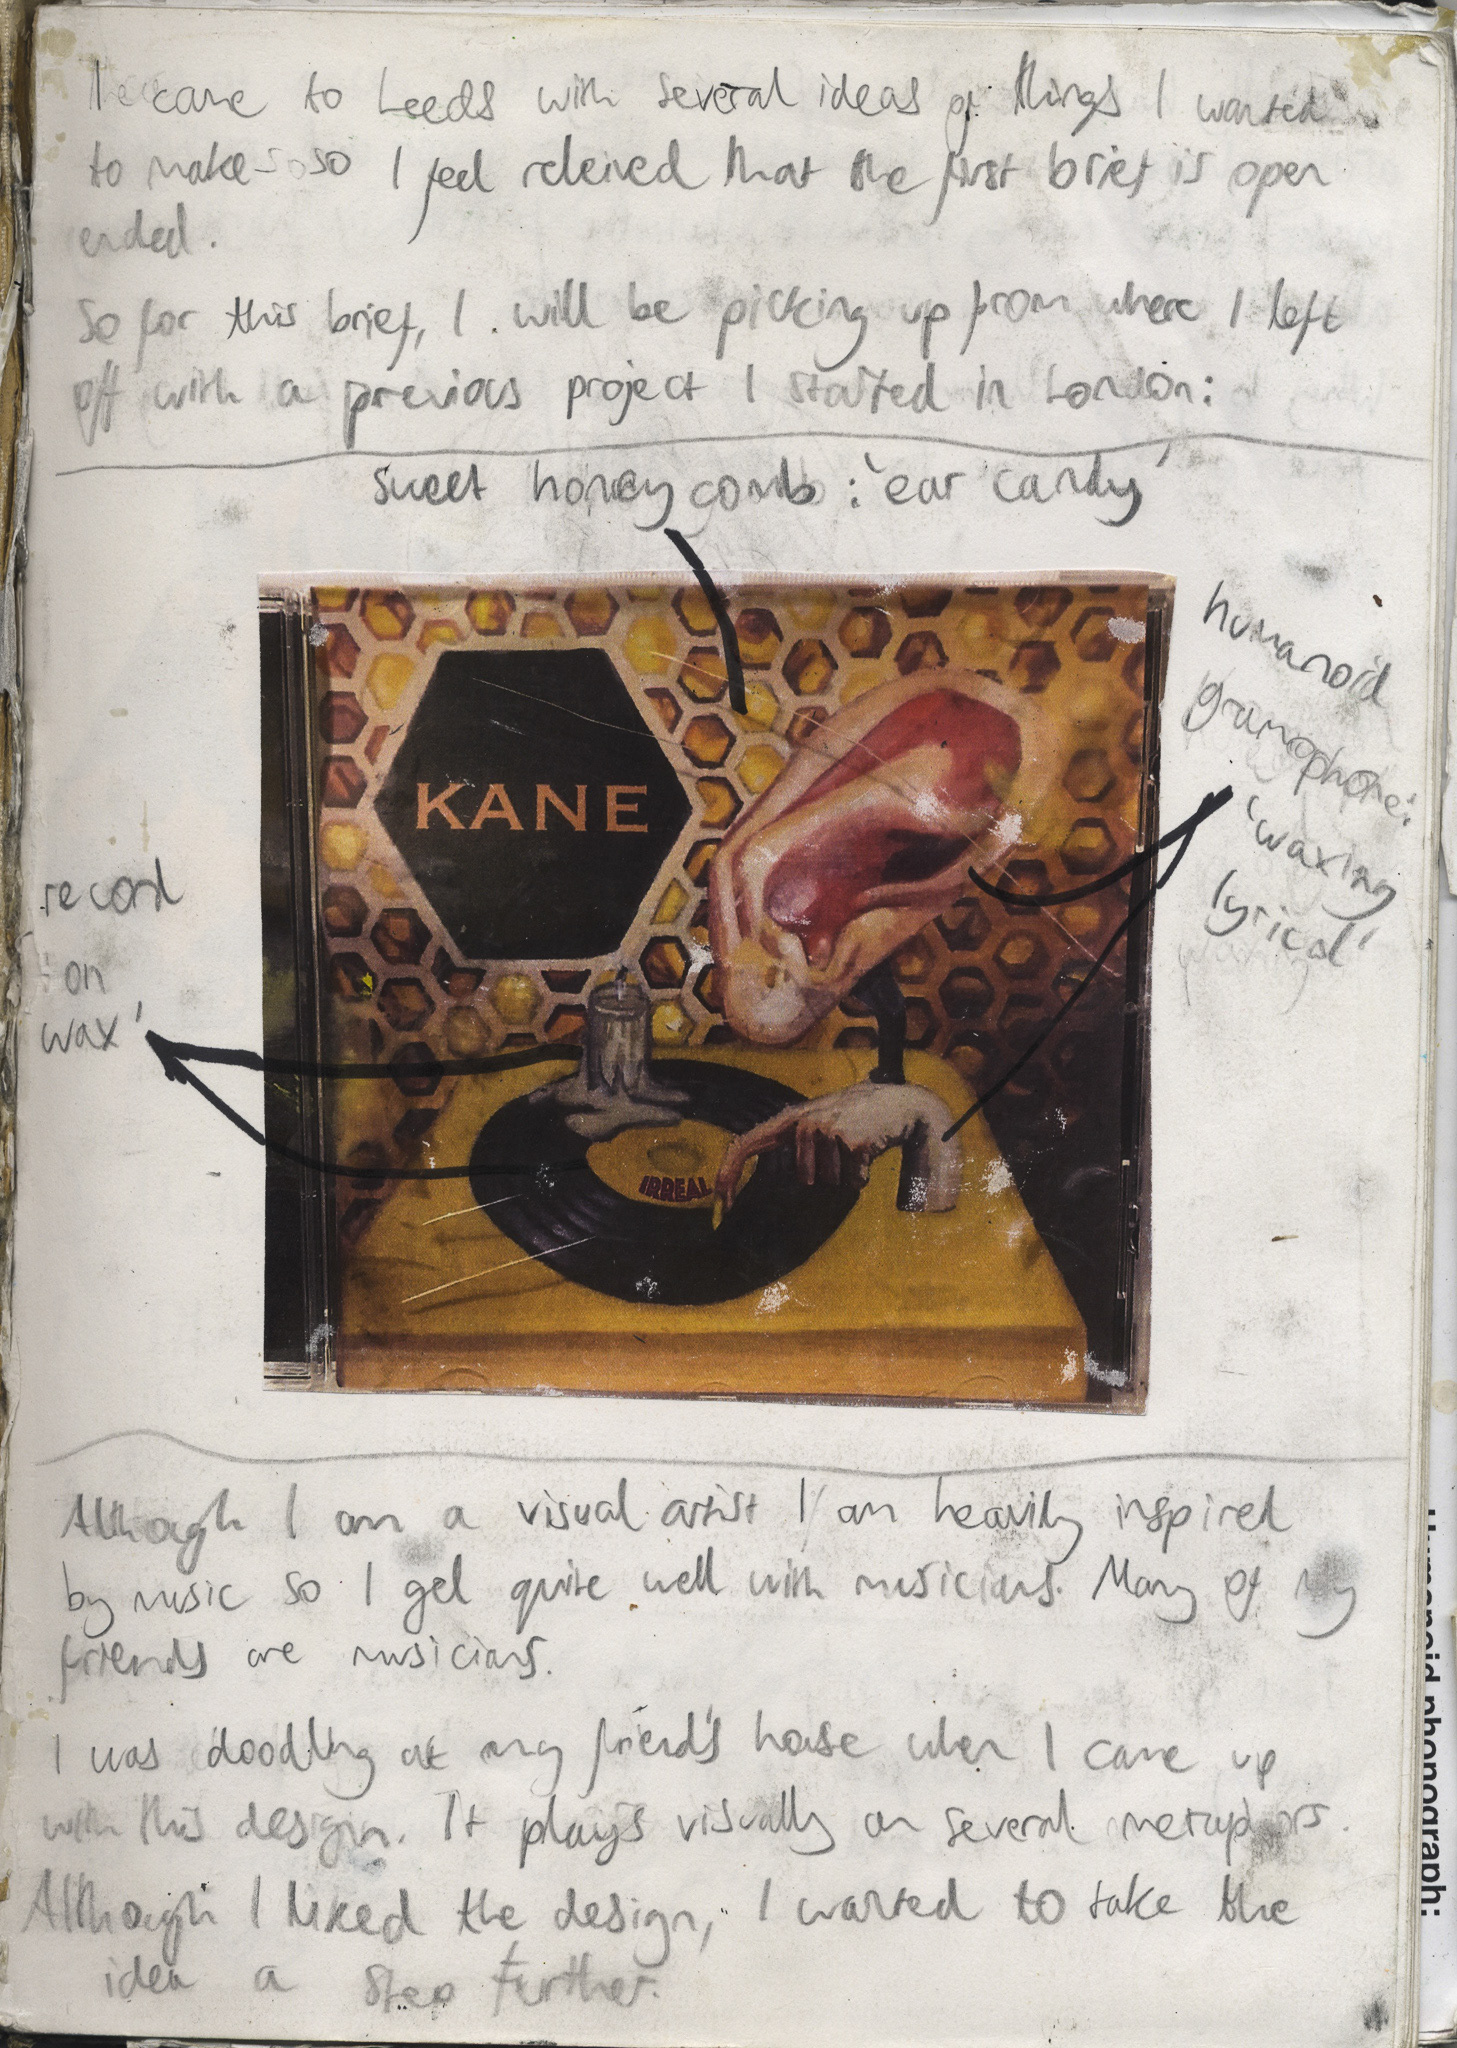 I came to Leeds with several ideas of things I wanted
to make so I feel releived that the first brief is open
ended.
So for this brief, I will be picking up from where I left
off with a previous project I started in London:
sweet honeycomb: 'ear candy'
humanoid
gramophone:
'waxing
lyrical'
KANE
record
'on
wax'
IRREAL
Although I am a visual artist I am heavily inspired
by music so I gel quite well with musicians. Many of my
friends are musicians.
I was doodling at my friend's house when I came up
with this design. It plays visually on several metaphors.
Although I liked the design, I wanted to take the
idea a step further.
Humanoid phonograph: